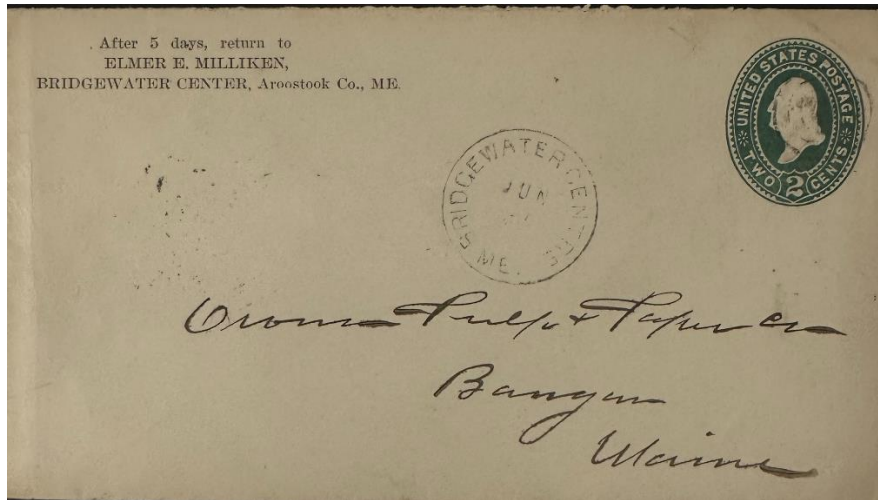 After 5 days, return to
ELMER E. MILLIKEN,
BRIDGEWATER CENTER, Aroostook Co., ME.
UNITED STATES POSTAGE
TWO 2 CENTS
BRIDGEWATER CENTRE
JUN
ME.
Orono Pulp & Paper Co
Bangor
Maine